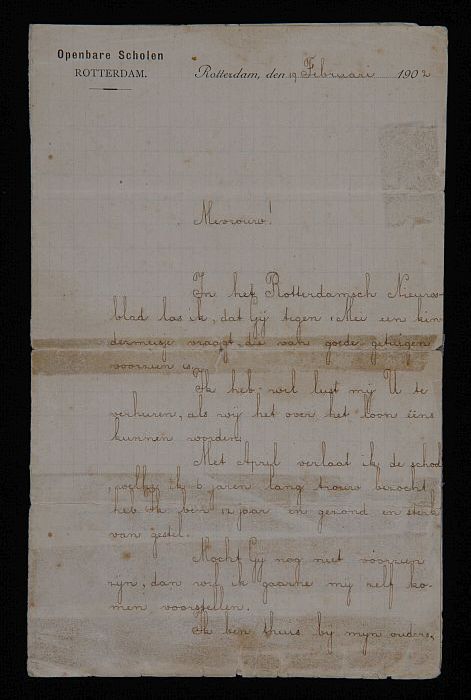 Openbare Scholen
ROTTERDAM.
Rotterdam, den 19 Februari 1902
Mevrouw!
In het Rotterdamsch Nieuws-
blad las ik, dat Gij tegen 1 Mei een kin
dermeisje vraagt, die van goede getuigen
voorzien is.
Ik heb wel lust mij U te
verhuren, als wij het over het loon ééns
kunnen worden.
Met April verlaat ik de school
, welke ik 6 jaren lang trouw bezocht
heb. Ik ben 12 jaar en gezond en sterk
van gestel.
Mocht Gij nog niet voorzien
zijn, dan wil ik gaarne mij zelf ko-
men voorstellen.
Ik ben thuis bij mijn ouders,